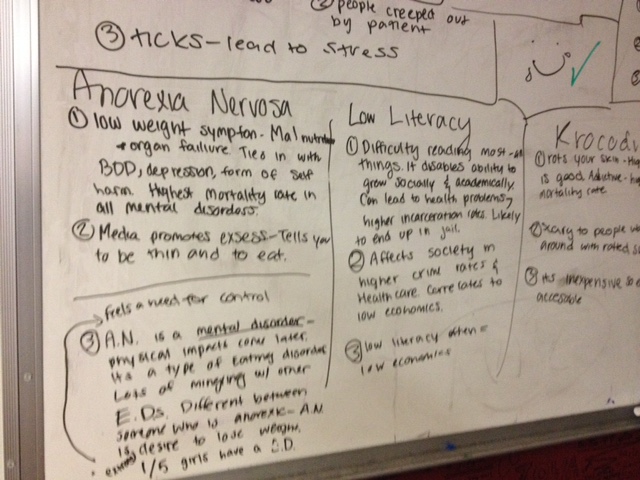 ② people creeped out
by patient
③ ticks-lead to stress
Anorexia Nervosa
① low weight sympton. Malnutrition
+ organ faillure. Ties in with
BOD, depression, form of self
harm. Highest mortality rate in
all mental disorders.
② Media promotes exsess-Tells you
to be thin and to eat.
feels a need for control
③ A.N. is a mental disorder-
physical impacts come later.
Its a type of eating disorder
Lots of mingling w/ other
E.Ds. Different between
someone who is anorexic- A.N.
is desire to lose weight.
1/5 girls have a E.D.
Low Literacy
① Difficulty reading most-all
things. It disables ability to
grow socially & academically.
Can lead to health problems,
higher incarceration rates. Likely
to end up in jail.
② Affects society in
higher crime rates &
Healthcare. Correlates to
low economics.
③ low literacy often =
low economics
Krocodi
① rots your skin - Hig
is good. Addictive - hig
mortality rate
② Scary to people wa
around with rotted s
③ Its inexpensive so e
accessable